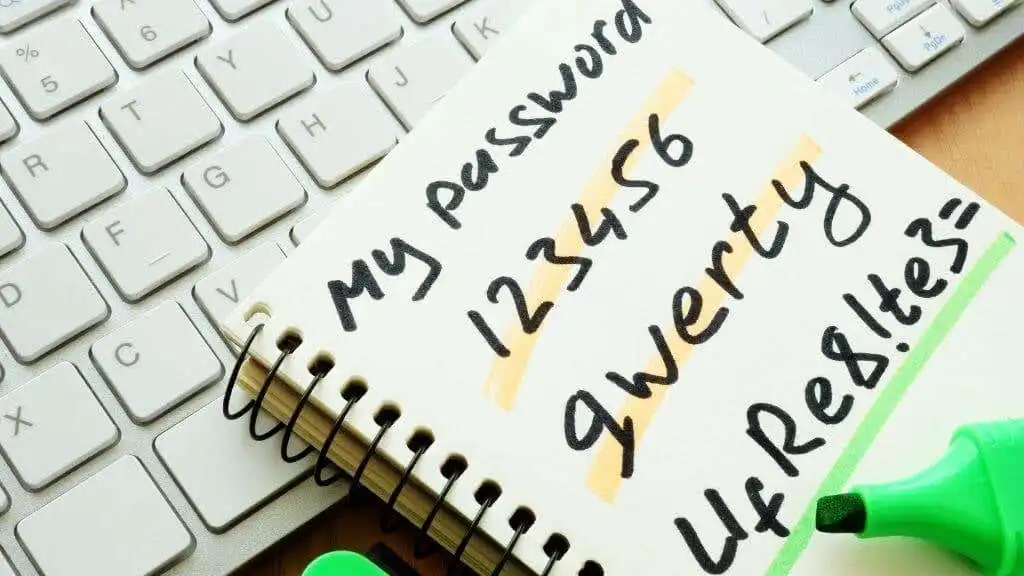 My password
123456
qwerty
UfRe8!te3=
%
5
6
R T Y U
D F G H J K
X C V
Home
PgDn